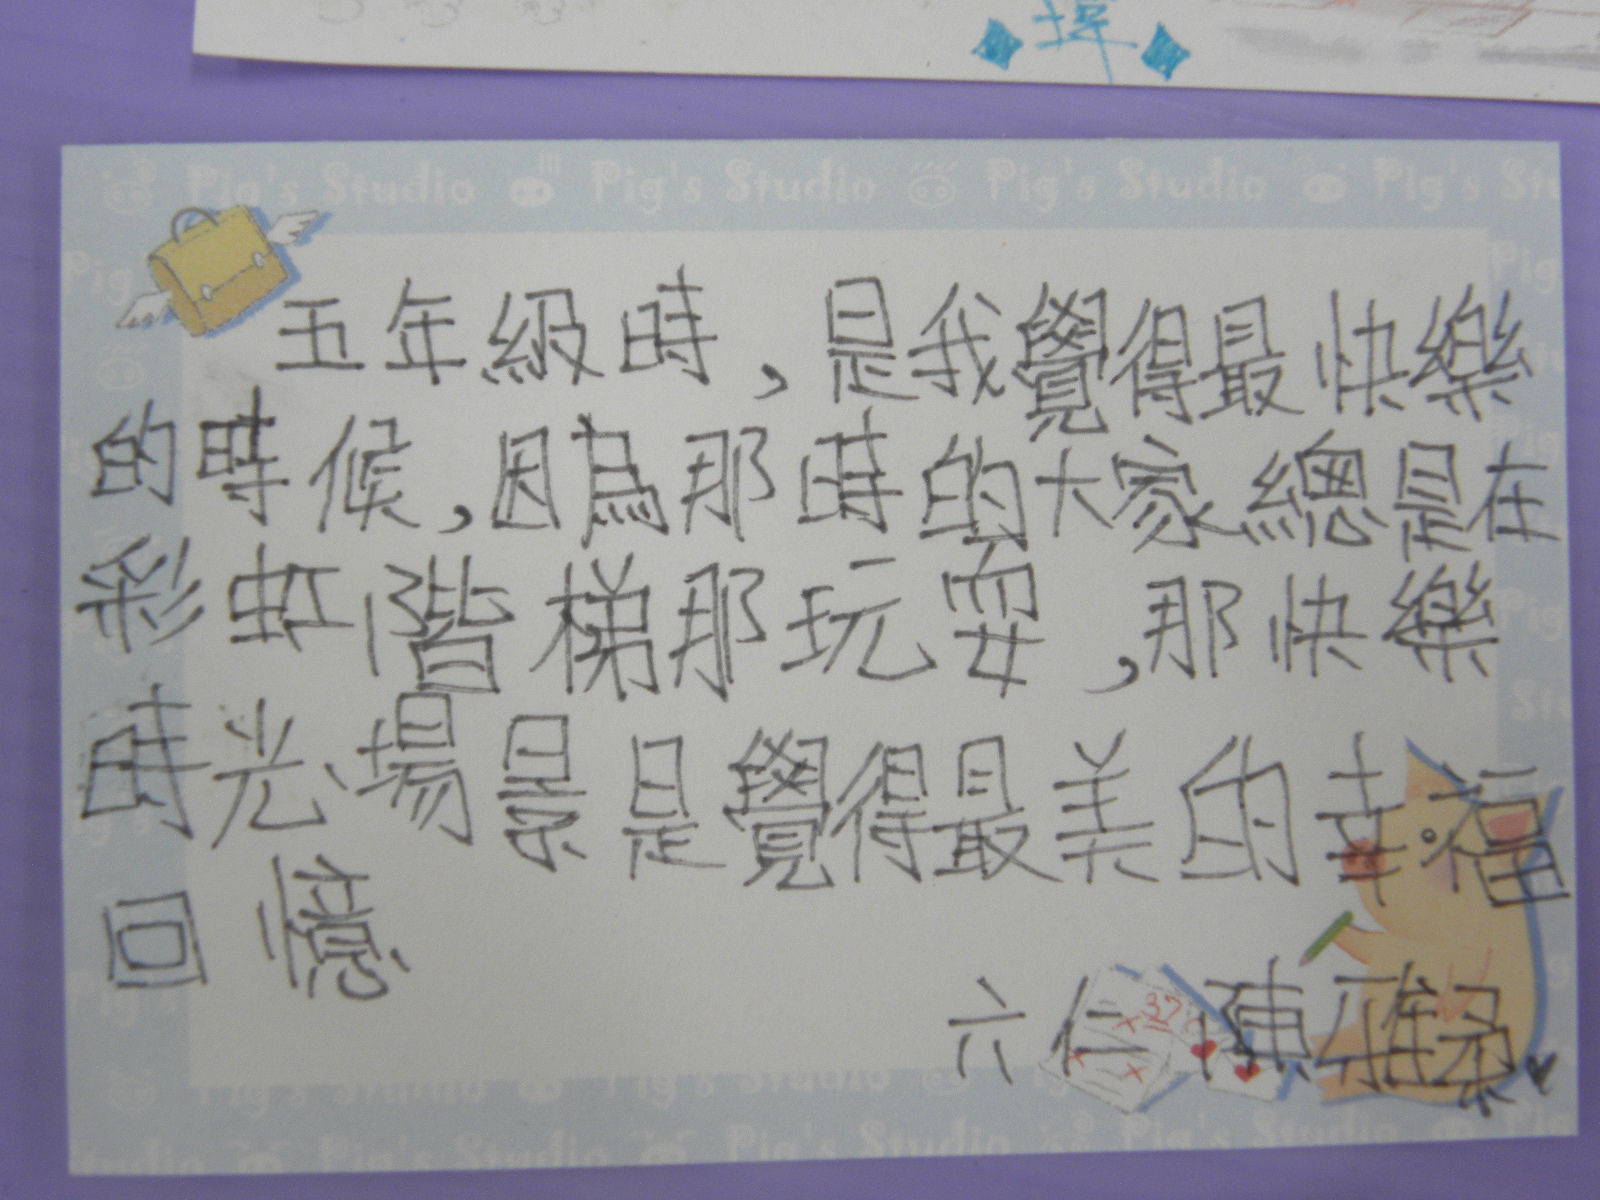 瑋
Pig's Studio Pig's Studio Pig's Studio Pig's Stu
五年級時,是我覺得最快樂
的時候,因為那時的大家總是在
彩虹階梯那玩耍,那快樂
時光、場景是覺得最美的幸福
回憶
六仁陳雅柔
37
Pig's Studio Pig's Studio
tudio Pig's Studio Pig's Studio Pig's Studio Pig